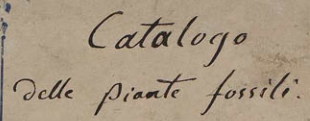 Catalogo
delle piante fossili.